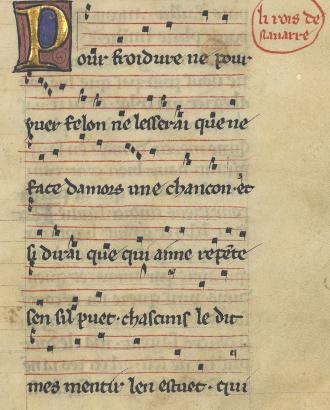 li rois de
navarre
Pour froidure ne pour
yuer felon ne lesserai que ne
face damors une chancon · et
si dirai que qui aime repēte
sen sil puet · chascuns le dit
mes mentir len estuet · qui